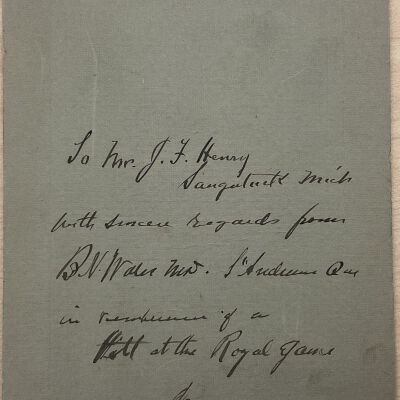 To Mr. J. F. Henry
Saugatuck Mich
with sincere regards from
B. N. Wales MD. St Andrews Que
in remembrance of a
at the Royal Game